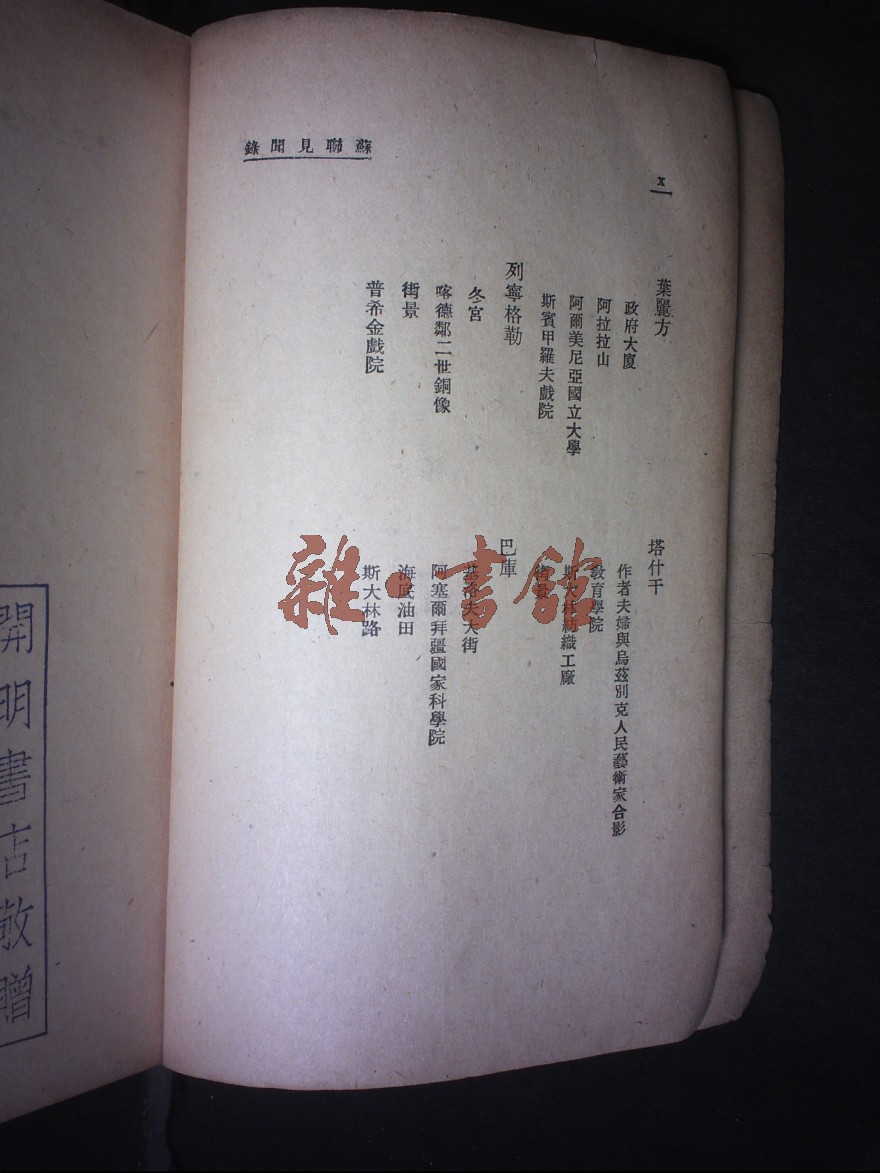 蘇聯見聞錄
x
葉麗方
政府大廈
阿拉拉山
阿爾美尼亞國立大學
斯賓甲羅夫戲院
列寧格勒
冬宮
喀德鄰二世銅像
街景
普希金戲院
塔什干
作者夫婦與烏茲別克人民藝術家合影
敎育學院
斯大林紡織工廠
街景
巴庫
基洛夫大街
阿塞爾拜疆國家科學院
海底油田
斯大林路
雜·書館
開明書店敬贈